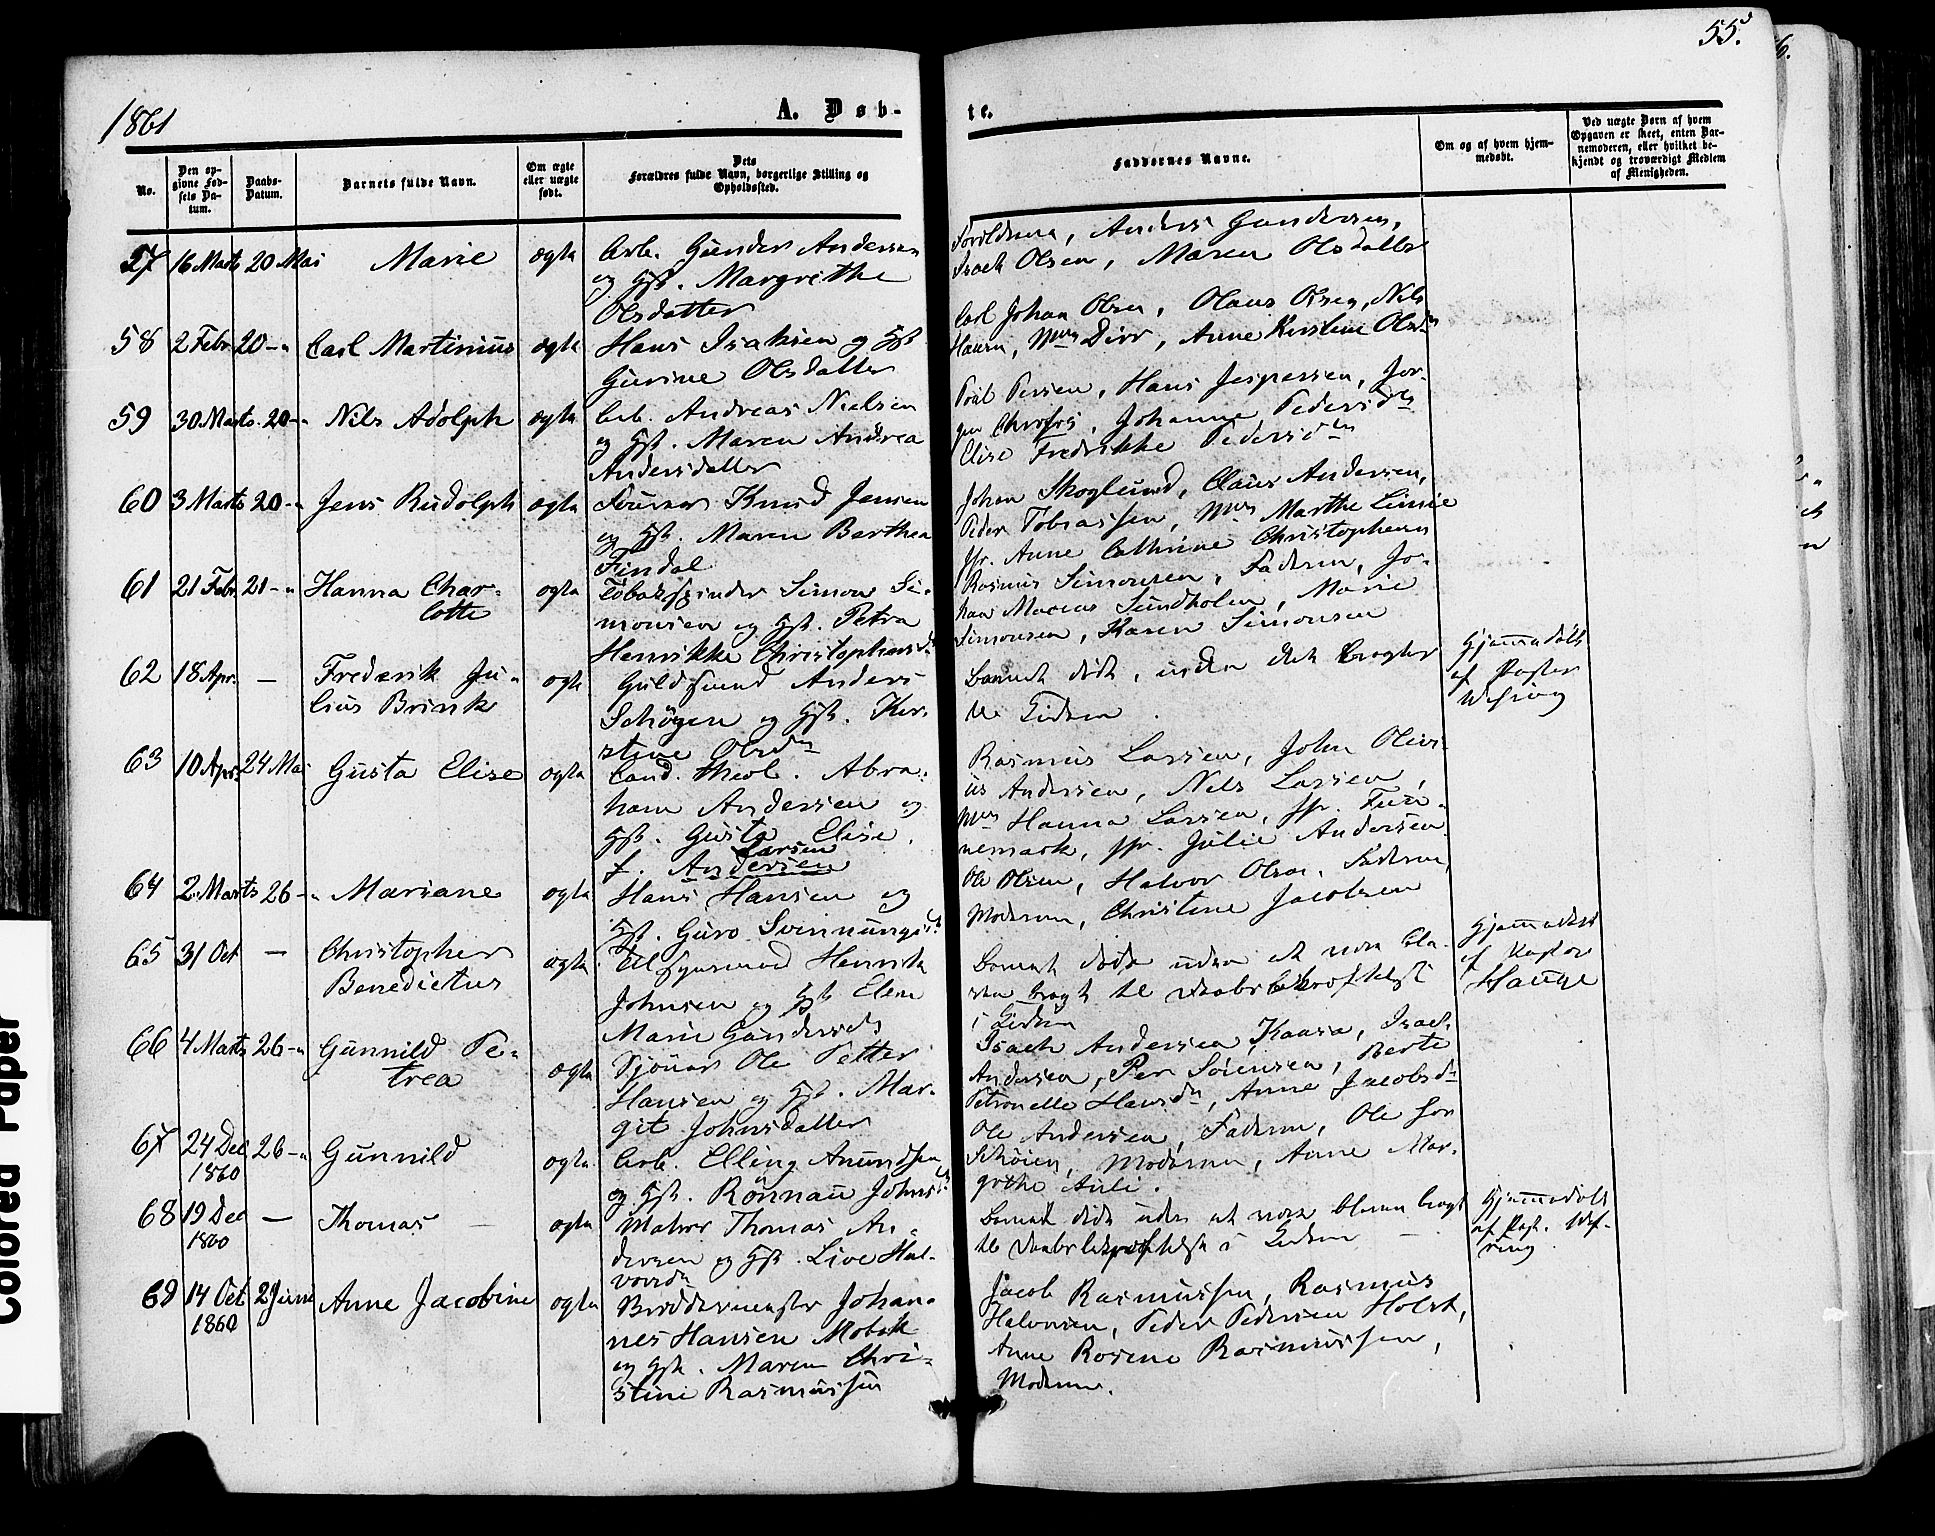 55.
6.
1861
A. Døb-
te.
No.
Den op-
givne Fød-
sels Da-
tum.
Daabs-
Datum.
Barnets fulde Navn.
Om ægte
eller uægte
født.
Dets
Forældres fulde Navn, borgerlige Stilling og
Opholdssted.
Faddernes Navne.
Om og af hvem hjem-
medøbt.
Ved uægte Børn af hvem
Opgaven er skeet, enten Bar-
nemoderen, eller hvilket be-
kjendt og troværdigt Medlem
af Menigheden.
57 16 Marts 20 Mai Marie ægte Arb. Gunder Andersen
og Hst. Margrethe
Olsdatter
Forældrene, Anders Gundersen,
Isach Olsen, Maren Olsdatter
58 2 Febr. 20 -" Carl Martinius ægte Hans Isaksen og Hst
Gurine Olsdatter
Carl Johan Olsen, Olaus Olsen, Nils
Hansen, Mad Dirr, Anne Kirstine Olsdr
59 30 Marts. 20 -" Nils Adolph ægte Arb. Andreas Nielsen
og Hst. Maren Andrea
Andersdatter
Poul Persen, Hans Jespersen, Jør-
gen, Johanne Pedersdr
Elise Fredrikke Pedersdtr
60 3 Marts 20 -" Jens Rudolph ægte Knud Jensen
og Hst. Maren Berthea
Findal
Johan Skoglund, Claus Andersen,
Peder Tobiassen, Marthe Linnie
Jfr. Anne Cathrine Christophersen
61 21 Febr. 21 -" Hanna Char-
lotte ægte Tobakspinder Simon Si-
monsen og Hst. Petra
Henrikke Christophersd.
Rasmus Simonsen, Faderen, Jo-
han Marcus Sundholm, Marie
Simonsen, Karen Simonsen
62 18 Apr. — Frederik Ju-
lius Brink ægte Guldsmed Anders
Schøyen og Hst. Kir-
stine Olsdr
Barnet døde, inden det bragtes
til Kirken.
Hjemmedøbt
af Pastor
Wefring
63 10 Apr. 24 Mai Gusta Elise ægte Cand. theol. Abra-
ham Andersen og
Hst. Gusta Elise,
f. Andersen
Larsen
Rasmus Larsen, John Olivi-
us Andersen, Nels Larsen,
Hanna Larsen, Jfr. Furu-
nemark, Jfr. Julie Andersen
64 2. Marts 26 -" Mariane ægte Hans Hansen og
Hst. Guro Svinnungsd.
Ole Olsen, Halvor Olsen, Faderen,
Moderen, Christine Jacobsen
65 31 Oct — Christopher
Benedictus ægte Henrik
Johnsen og Hst Elen
Marie Gundersdr
Barnet døde uden at være ble-
ven bragt til Daabsbekræftelse
i Kirken
Hjemmedøbt
af Pastor
Hauge
66 4 Marts 26 -" Gunnild Pe-
trea ægte Ole Petter
Hansen og Hst. Mar-
git Johnsdatter
Isach Andersen Kaasa, Isach
Andersen, Per Sørensen, Berte
Petronelle Hansdr, Anne Jacobsdr
67 24 Dec
1860 26 -" Gunnild ægte. Arb. Elling Anundsen
og Hst. Rønnau Johnsd.
Ole Andersen, Faderen, Ole
Schøien, Moderen, Anne Mar-
grethe Auli.
68 19 Dec
1860 — Thomas ægte Matros Thomas An-
dersen og Hst. Live Hal-
vorsdr
Barnet døde uden at være bleven bragt
til Daabsbekræftelse i Kirken
Hjemmedøbt
af Past. Wef-
ring
69 14 Oct
1860 2 Juni Anne Jacobine ægte Johan-
nes Hansen Mobæk
og Hst. Maren Chri-
stine Rasmussen
Jacob Rasmussen, Rasmus
Halvorsen, Peder Pedersen Holst,
Anne Rosine Rasmussen,
Moderen.
Colored Paper